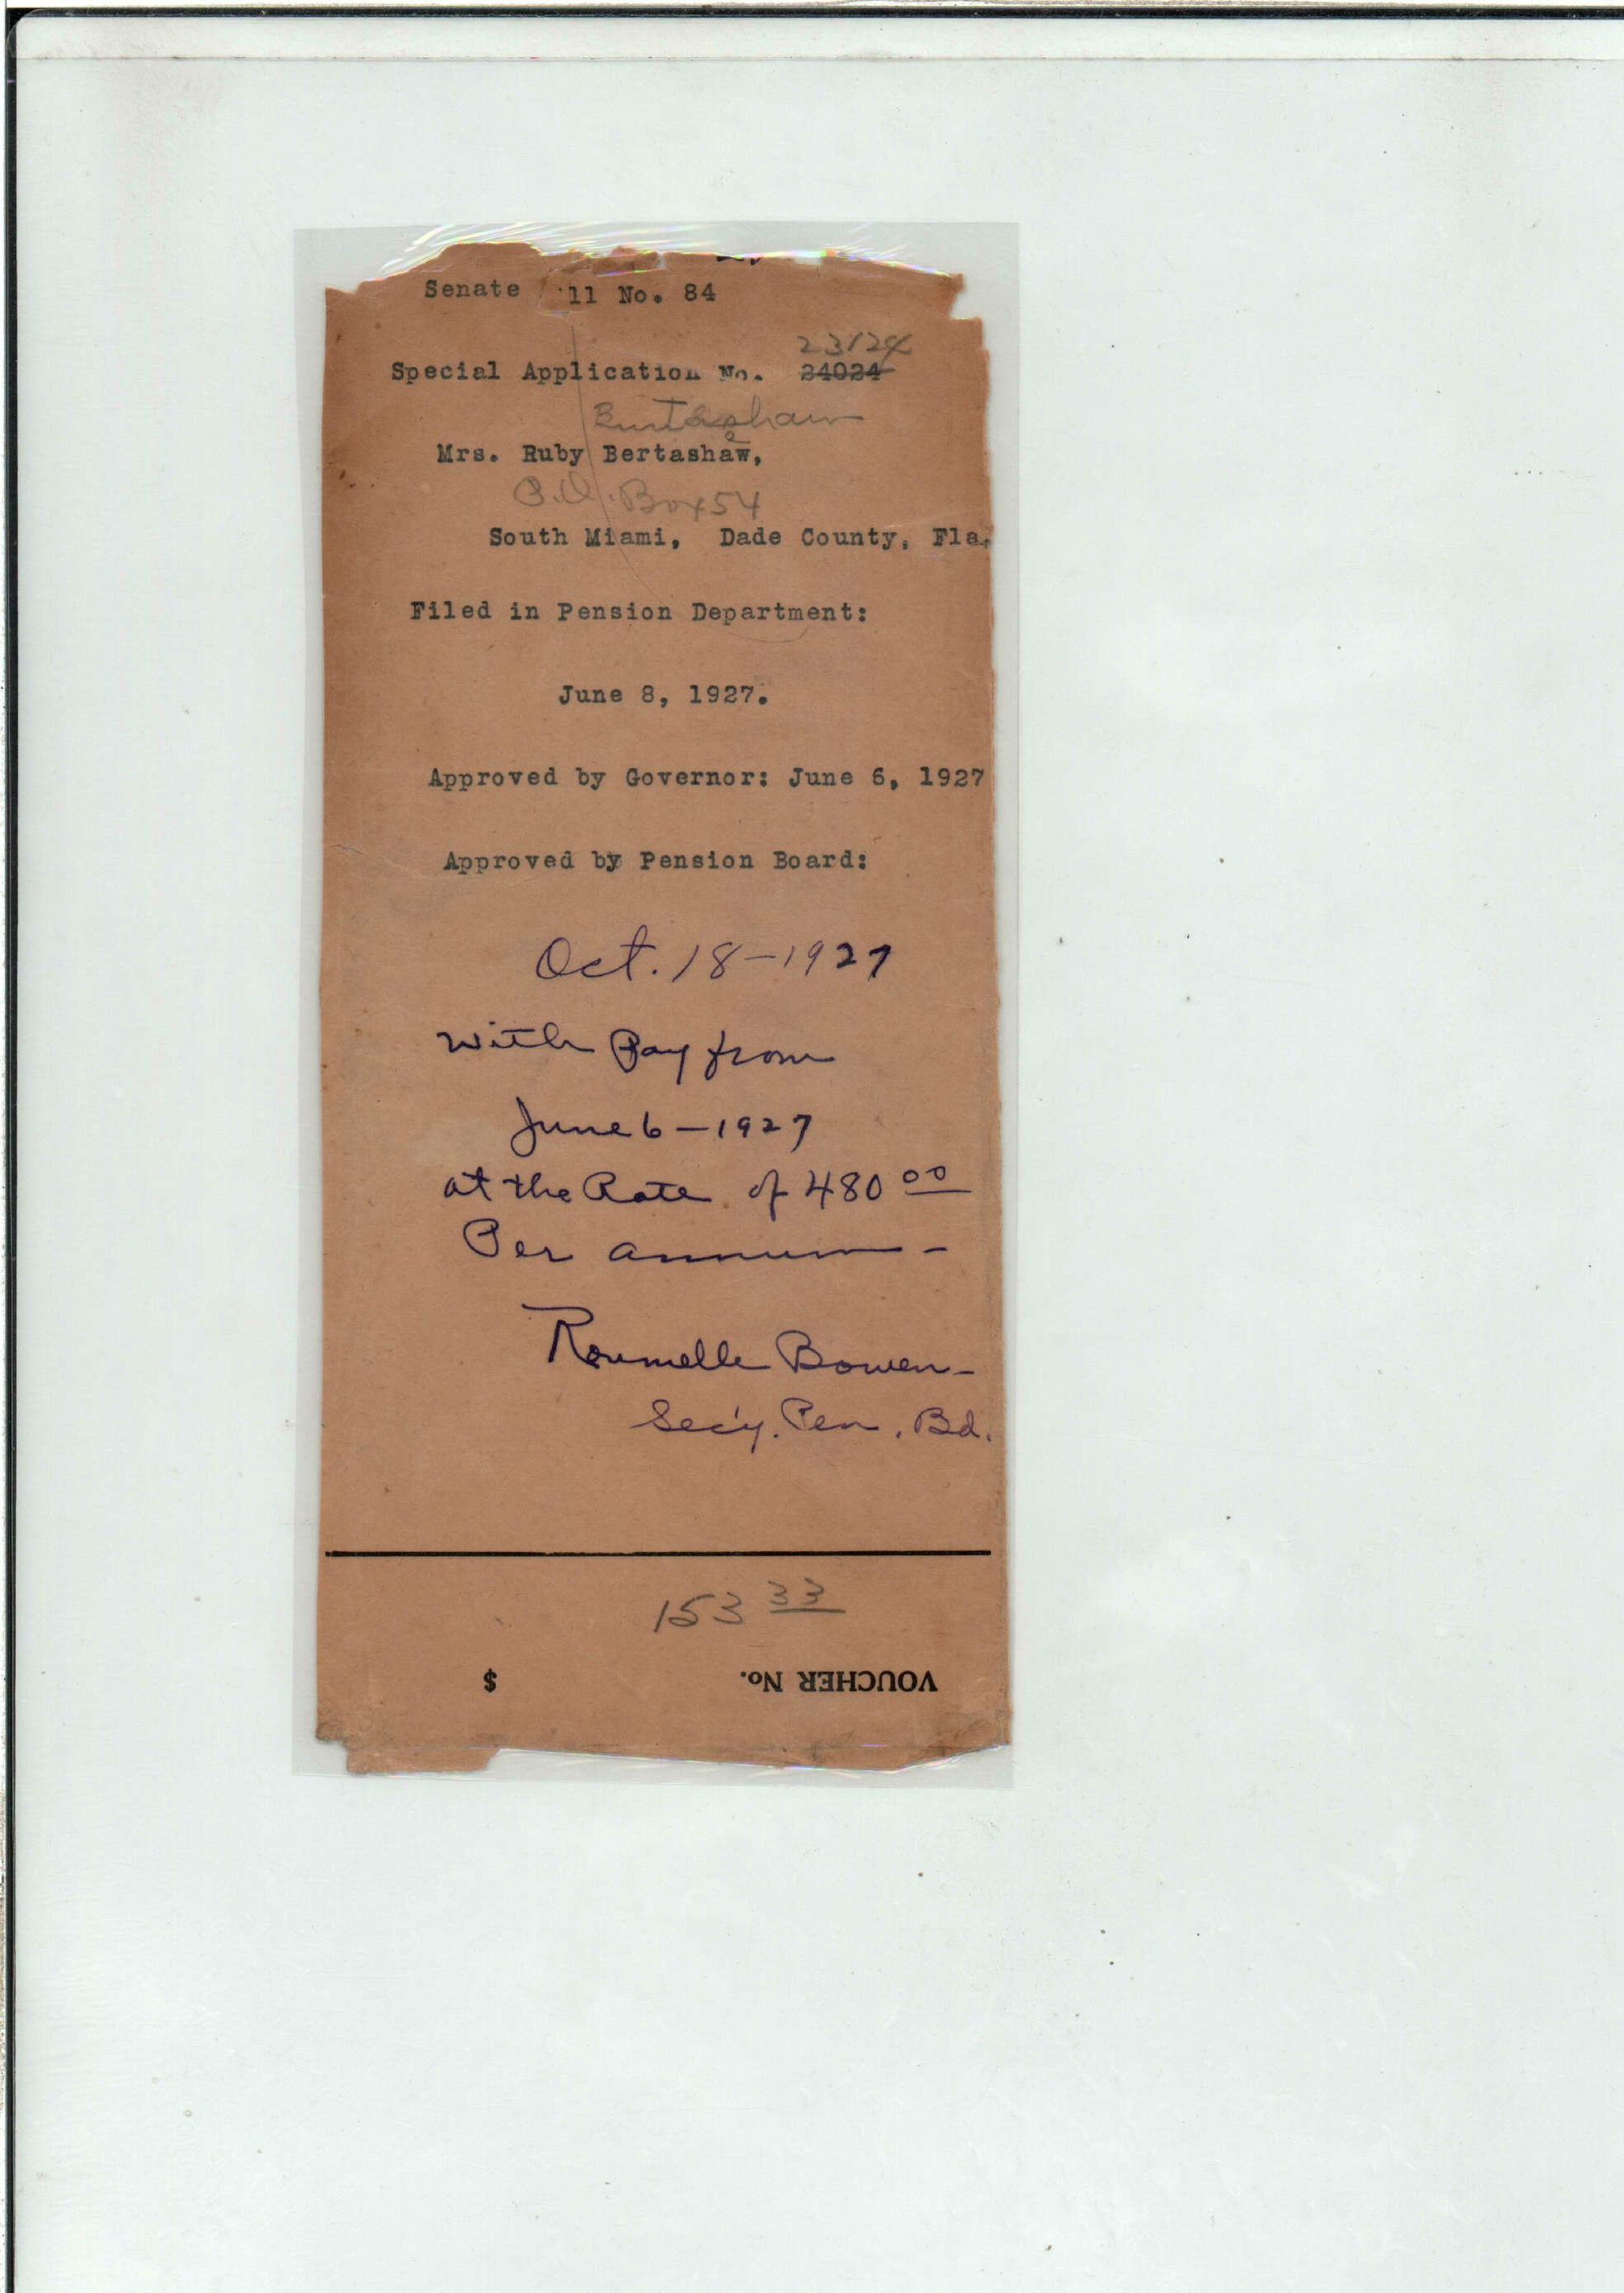 Senate 11 No. 84
23124
Special Application No. 24024
Burtashaw
Mrs. Ruby Bertashaw,
P.O. Box 54
South Miami, Dade County, Fla.
Filed in Pension Department:
June 8, 1927.
Approved by Governor: June 6, 1927
Approved by Pension Board:
Oct. 18-1927
With Pay from
June 6-1927
at the Rate of 480 00
Per annum-
Roumelle Bowen-
Sec'y. Pen. Bd.
153 33
VOUCHER No. $